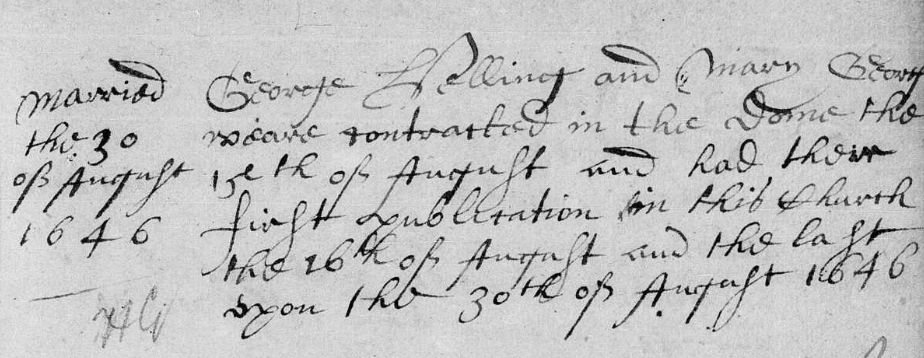 Married
the 30
off August
1646
George Welling and Mary George
weare contracted in the Dome the
15th off August and had their
first publication in this Church
the 16th off August and the last
upon the 30th off August 1646